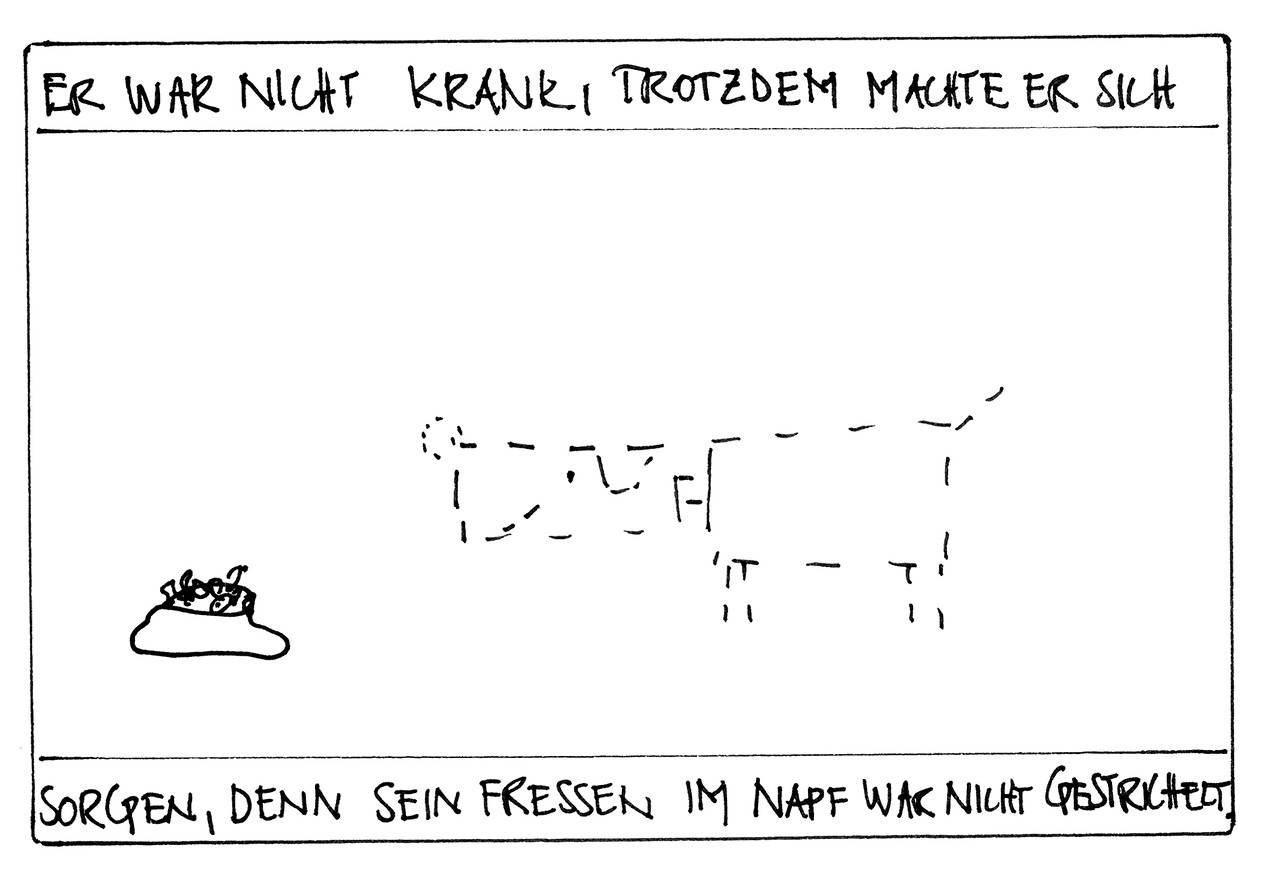 ER WAR NICHT KRANK, TROTZDEM MACHTE ER SICH
SORGEN, DENN SEIN FRESSEN IM NAPF WAR NICHT GESTRICHELT.